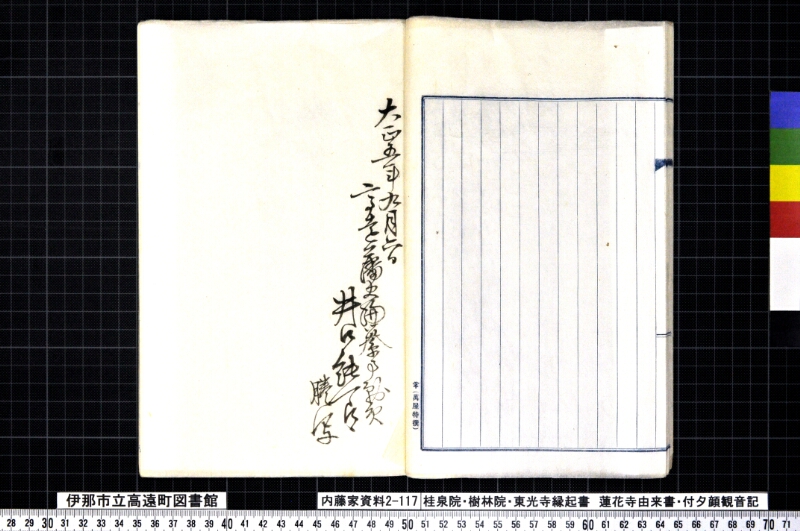 大正五年九月六日
高遠藩史編纂事務處
井口
謄写
伊那市立高遠町図書館
内藤家資料2-117 桂泉院・樹林院・東光寺縁起書 蓮花寺由来書・付夕顔観音記
28 29 30 31 32 33 34 35 36 37 38 39 40 41 42 43 44 45 46 47 48 49 50 51 52 53 54 55 56 57 58 59 60 61 62 63 64 65 66 67 68 69 70 71